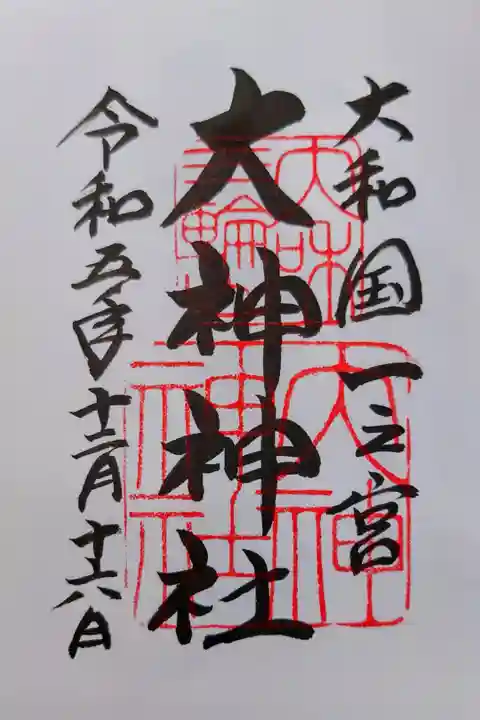 大和国一之宮
大神神社
令和五年十二月十六日